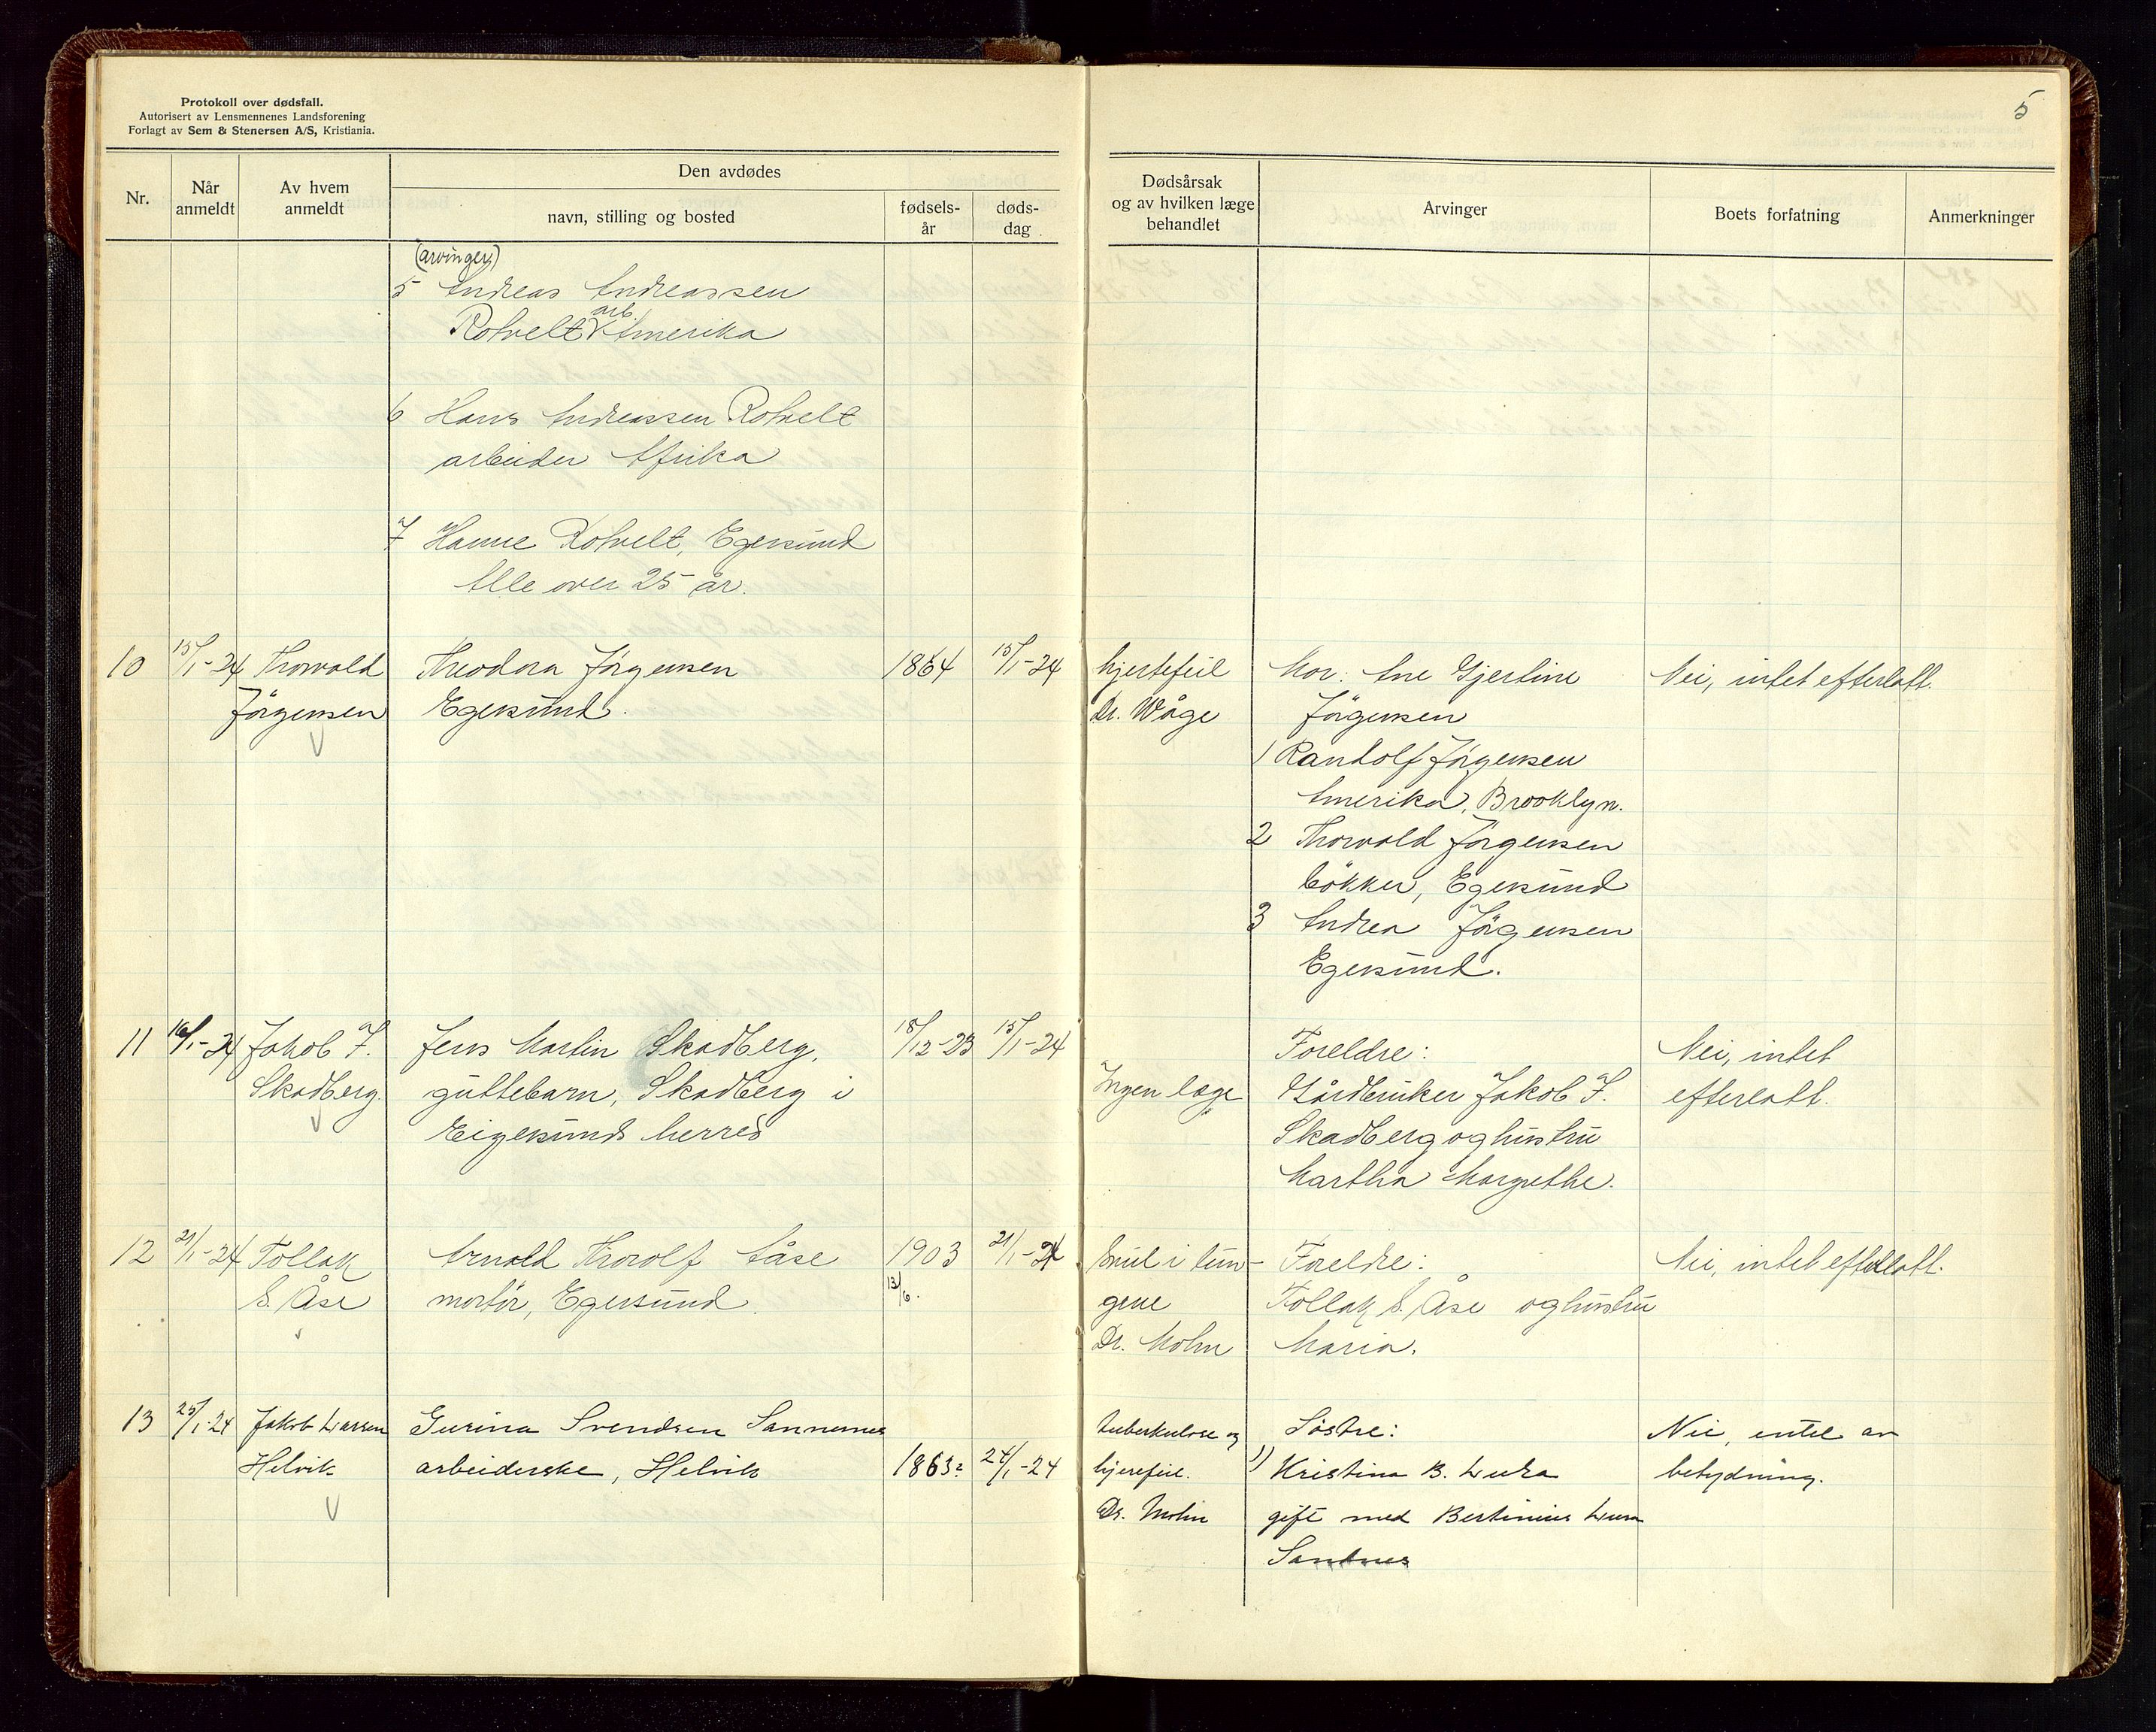 Protokoll over dødsfall.
Autorisert av Lensmennenes Landsforening
Forlagt av Sem & Stenersen A/S, Kristiania.
5
Nr.
Når anmeldt
Av hvem anmeldt
Den avdødes
navn, stilling og bosted
fødsels-år
døds-dag
Dødsårsak og av hvilken læge behandlet
Arvinger
Boets forfatning
Anmerkninger
(arvinger)
5 Andreas Andreassen
arb.
Rotvelt Amerika
6 Hans Andreassen Rotvelt
arbeider Afrika
7 Hanne Rotvelt, Egersund
Alle over 25 år.
10 15/1-24 Thorvald Theodora Jörgensen 1864 15/1-24 hjertefeil Mor: Ane Gjertine Nei, intet efterlatt.
Jörgensen Egersund. Dr. Wåge Jörgensen
1 Randolf Jörgensen
Amerika, Brooklyn.
2 Thorvald Jörgensen
bökker, Egersund
3 Andrea Jörgensen
Egersund.
11 16/1-24 Jakob J. Jens Martin Skadberg, 18/12-23 15/1-24 Foreldre: Nei, intet
Skadberg. guttebarn, Skadberg i Ingen læge Gårdbruker Jakob J. efterlatt.
Eigersunds herred Skadberg og hustru
Martha Margrethe.
12 21/1-24 Tollak Arnold Thorolf Aase 1903 21/1-24 Foreldre: Nei, intet efterlatt.
S. Åse Egersund. 13/6. gene Tollak S. Åse og hustru
Dr. Mohn Maria.
13 25/1-24 Jakob Larsen Gurina Svendsen Sannemes tuberkulose og Søstre: Nei, intet av
Helvik arbeiderske, Helvik 1863? 24/1-24 hjerefeil. 1) Kristina B. Lura betydning.
Dr. Mohn gift med Bertinius Lura
Sandnes